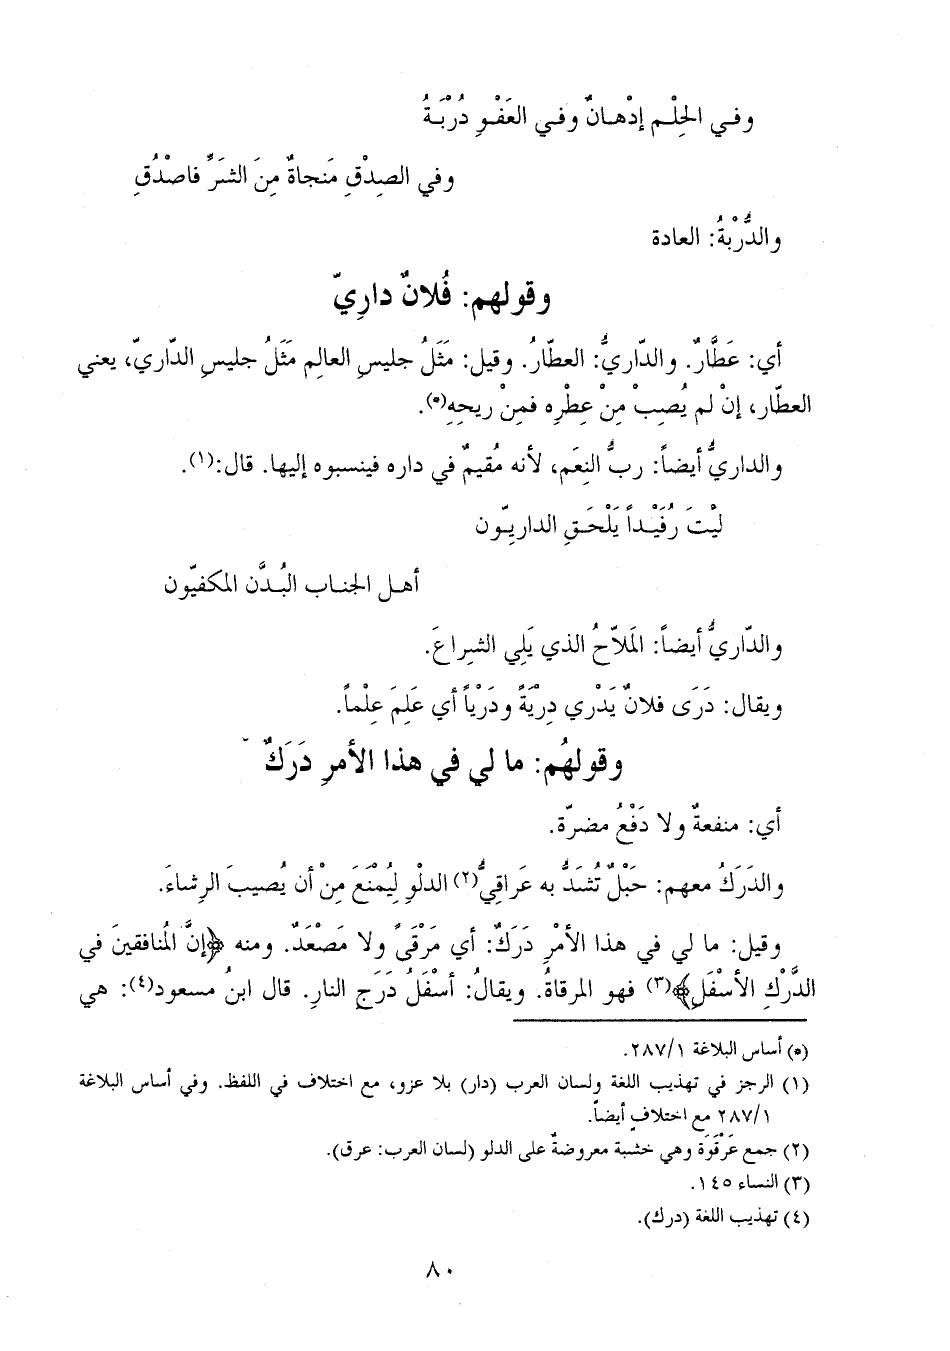 وفي الحِلْم إدْهانٌ وفي العَفْوِ دُرْبَةُ
وفي الصِدْقِ مَنجاةٌ مِنَ الشرِّ فاصْدُقِ
والدُّرْبةُ: العادة
وقولهم: فُلانٌ دارِيّ
أي: عَطَّارٌ. والدّاريُّ: العطّارُ. وقيل: مَثَلُ جليسِ العالِم مَثَلُ جليسِ الدّاريّ، يعني
العطّار، إنْ لم يُصِبْ مِنْ عِطْرِه فمِنْ ريحِهِ(*).
والداريُّ أيضاً: ربُّ النِعَم، لأنه مُقيمٌ في داره فينسبوه إليها. قال:(١).
ليْتَ رُفَيْداً يَلْحَقِ الداريّون
أهل الجناب البُدَّن المكفيّون
والدّاريُّ أيضاً: المَلاّحُ الذي يَلِي الشِراعَ.
ويقال: دَرَى فلانٌ يَدْري دِرْيَةً ودَرْياً أي عَلِمَ عِلْماً.
وقولهُم: ما لي في هذا الأمرِ دَرَكٌ
أي: منفعةٌ ولا دَفْعُ مضرّة.
والدَرَكُ معهم: حَبْلٌ تُشَدُّ به عَراقيُّ(٢) الدلْوِ لِيُمْنَعَ مِنْ أن يُصيبَ الرِشاءَ.
وقيل: ما لي في هذا الأمْرِ دَرَكٌ: أي مَرْقىً ولا مَصْعَدٌ. ومنه ﴿إنَّ المُنافقينَ في
الدَّرْكِ الأسْفَلِ﴾(٣) فهو المرقاةُ. ويقالُ: أسْفَلُ دَرَجِ النارِ. قال ابنُ مسعود(٤): هي
(*) أساس البلاغة ٢٨٧/١.
(١) الرجز في تهذيب اللغة ولسان العرب (دار) بلا عزو، مع اختلاف في اللفظ. وفي أساس البلاغة
٢٨٧/١ مع اختلافٍ أيضاً.
(٢) جمع عَرْقَوَة وهي خشبة معروضةٌ على الدلو (لسان العرب: عرق).
(٣) النساء ١٤٥.
(٤) تهذيب اللغة (درك).
٨٠